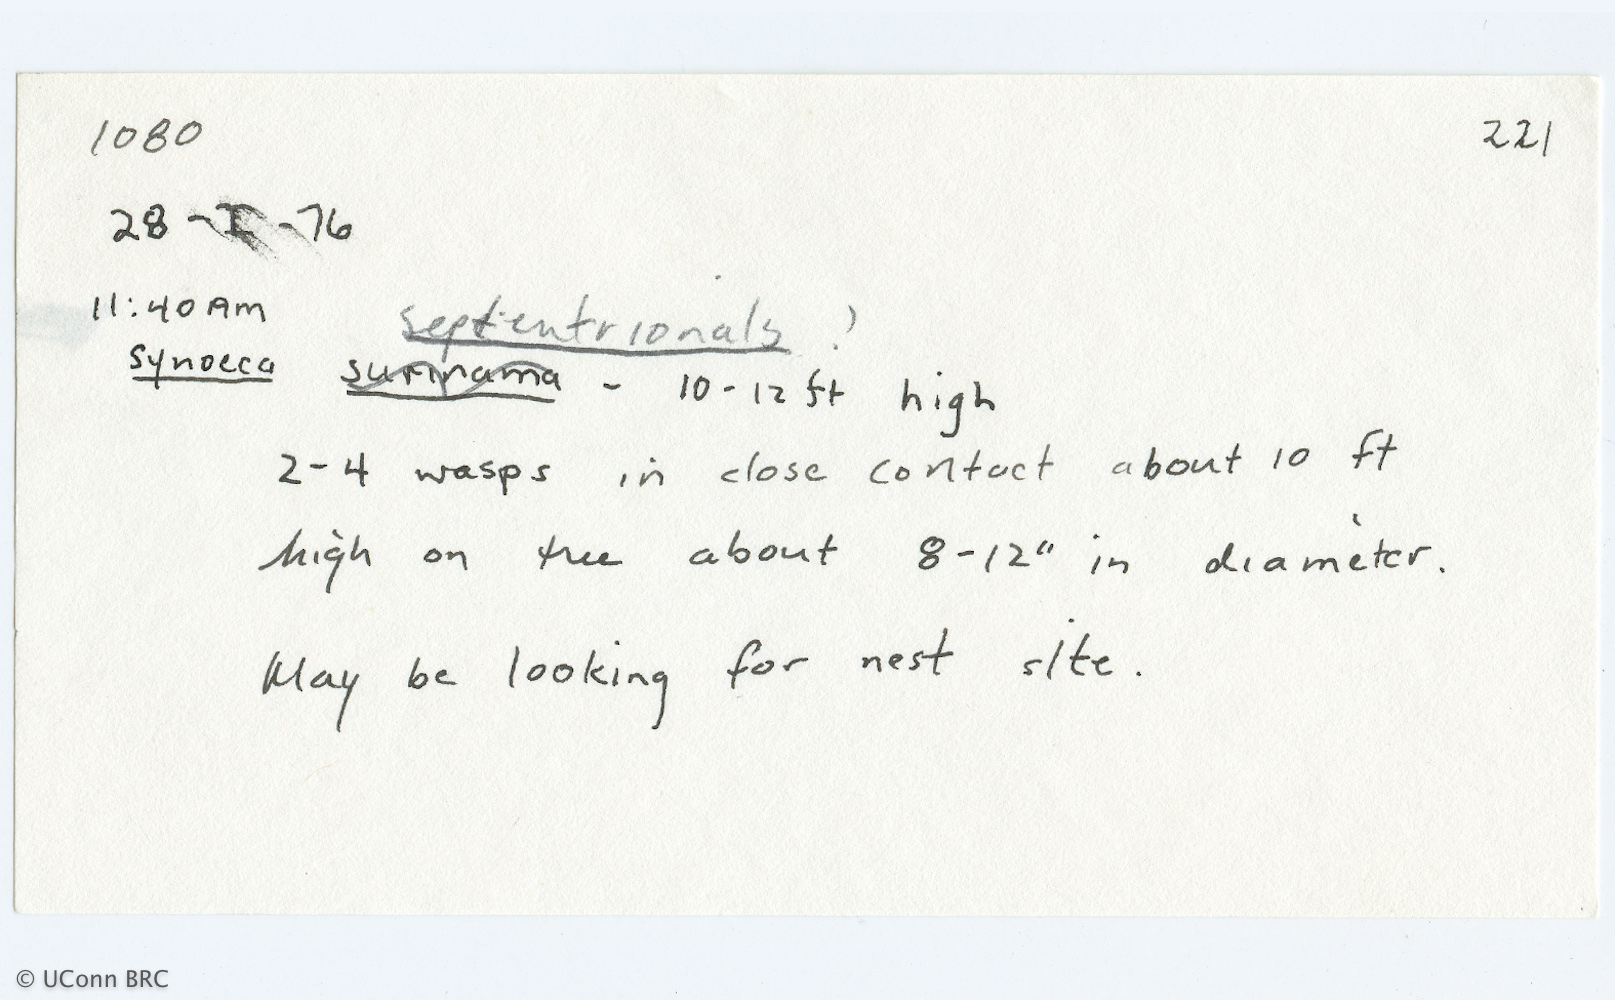 1080 221
28-I-76
11:40 Am
septentrionals ?
synoeca surinama - 10-12 ft high
2-4 wasps in close contact about 10 ft
high on tree about 8-12" in diameter.
May be looking for nest site.
© UConn BRC